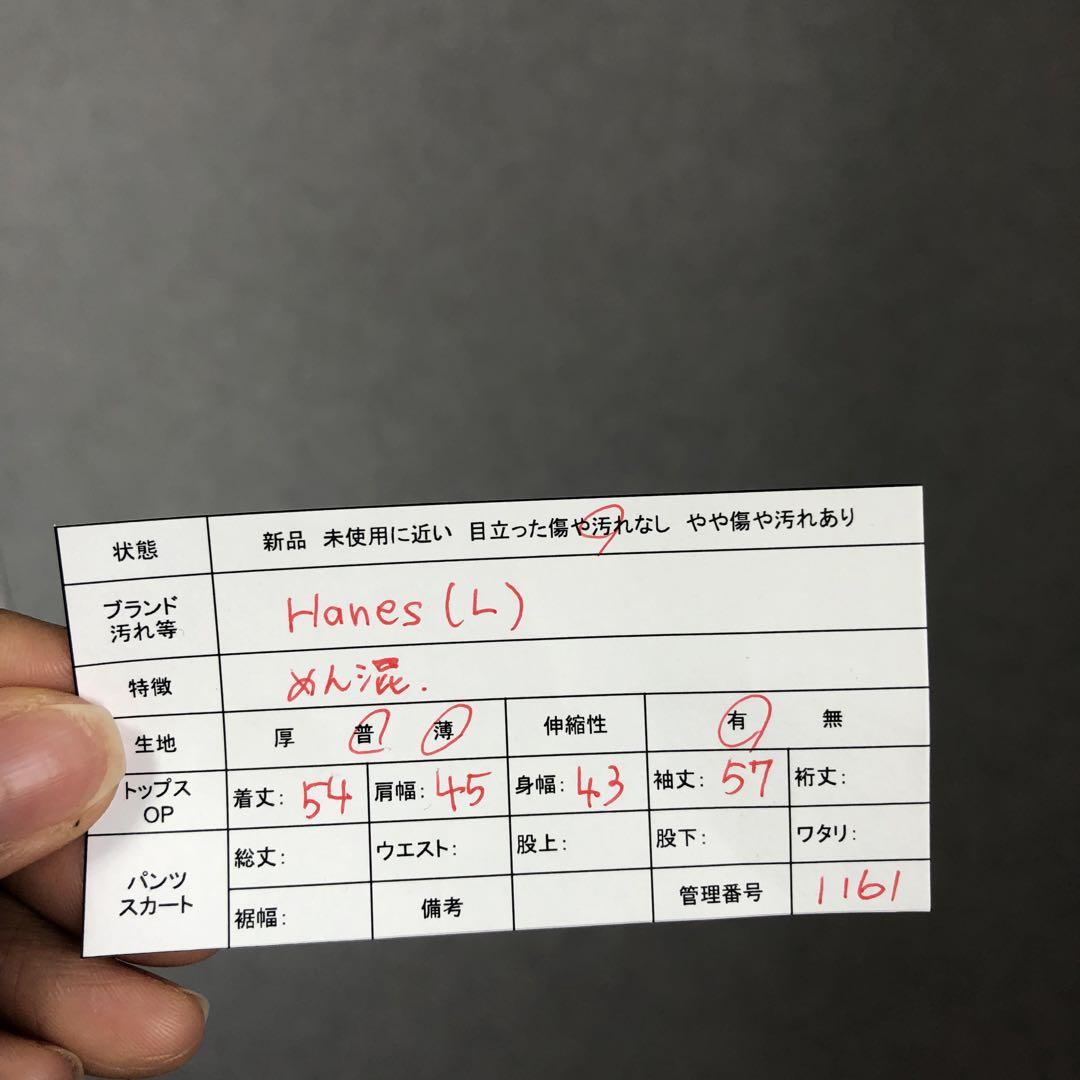 状態 新品 未使用に近い 目立った傷や汚れなし やや傷や汚れあり
ブランド 汚れ等 Hanes (L)
特徴 めん混.
生地 厚 普 薄 伸縮性 有 無
トップス OP 着丈: 54 肩幅: 45 身幅: 43 袖丈: 57 裄丈:
パンツ スカート 総丈: ウエスト: 股上: 股下: ワタリ:
裾幅: 備考 管理番号 1161